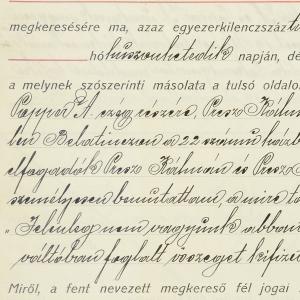 megkeresésére ma, azaz egyezerkilenczszáz
hó huszonhetedik napján, dé
a melynek szószerinti másolata a tulsó oldalo
A. czég részére Presz Kálmá
Belatinczen a 22 számú házb
elfogadók Presz Kálmán és Presz
személyesen bemutattam, a mire
"Jelenleg nem vagyunk abban
váltóban foglalt összeget kifize
Miről, a fent nevezett megkereső fél jogai